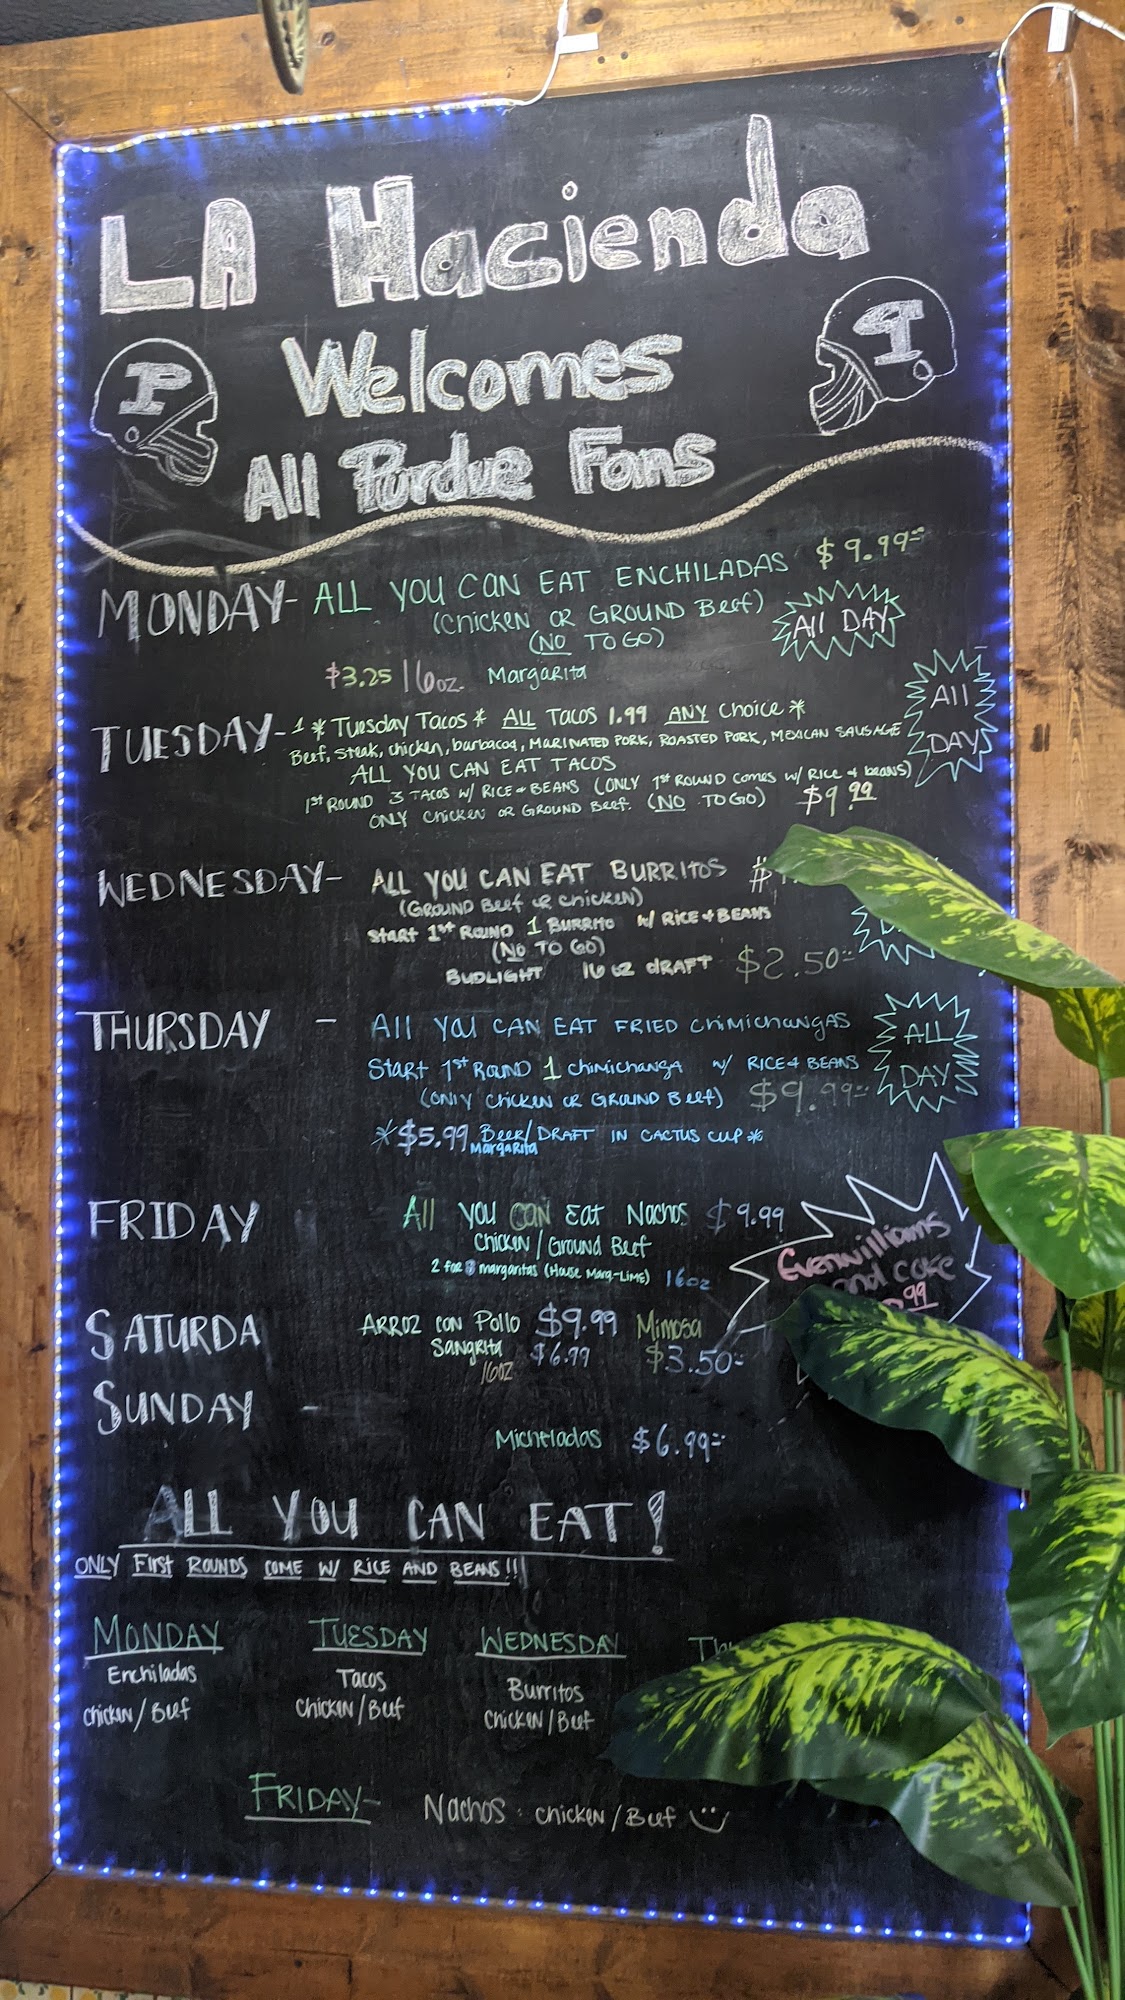 LA Hacienda
Welcomes
All Purdue Fans
P
P
MONDAY- ALL YOU CAN EAT ENCHILADAS $9.99
(Chicken OR GROUND Beef)
(NO TO GO)
All DAY
$3.25 16oz. Margarita
TUESDAY- 1 * Tuesday Tacos * ALL Tacos 1.99 ANY Choice *
Beef, Steak, chicken, barbacoa, MARINATED PORK, ROASTED PORK, MEXICAN SAUSAGE
ALL YOU CAN EAT TACOS
1st ROUND 3 TACOS W/ RICE + BEANS (ONLY 1st ROUND comes w/ Rice + beans)
ONLY Chicken OR GROUND Beef. (NO TO GO) $9.99
All
DAY
WEDNESDAY- ALL YOU CAN EAT BURRITOS $
(GROUND Beef OR Chicken)
Start 1st ROUND 1 BURRITO W/ RICE + BEANS
(NO TO GO)
BUDLIGHT 16 oz DRAFT $2.50
THURSDAY - All YOU CAN EAT FRIED ChimichangAS
Start 1st ROUND 1 chimichanga w/ RICE + BEANS
(ONLY Chicken OR GROUND Beef) $9.99
ALL
DAY
*$5.99 Beer/DRAFT IN CACTUS CUP *
Margarita
FRIDAY All YOU CAN Eat Nachos $9.99
Chicken / Ground Beef
2 for margaritas (House Marg-Lime) 16oz
Evanwilliams
and coke
99
SATURDA ARROZ CON Pollo $9.99 Mimosa
SANGRITA $6.99 $3.50
16OZ
SUNDAY -
Micheladas $6.99
ALL YOU CAN EAT!
ONLY First ROUNDS COME W/ RICE AND BEANS!!
MONDAY TUESDAY WEDNESDAY
Enchiladas Tacos Burritos
chicken / Beef Chicken / Beef Chicken / Beef
FRIDAY- Nachos: chicken / Beef